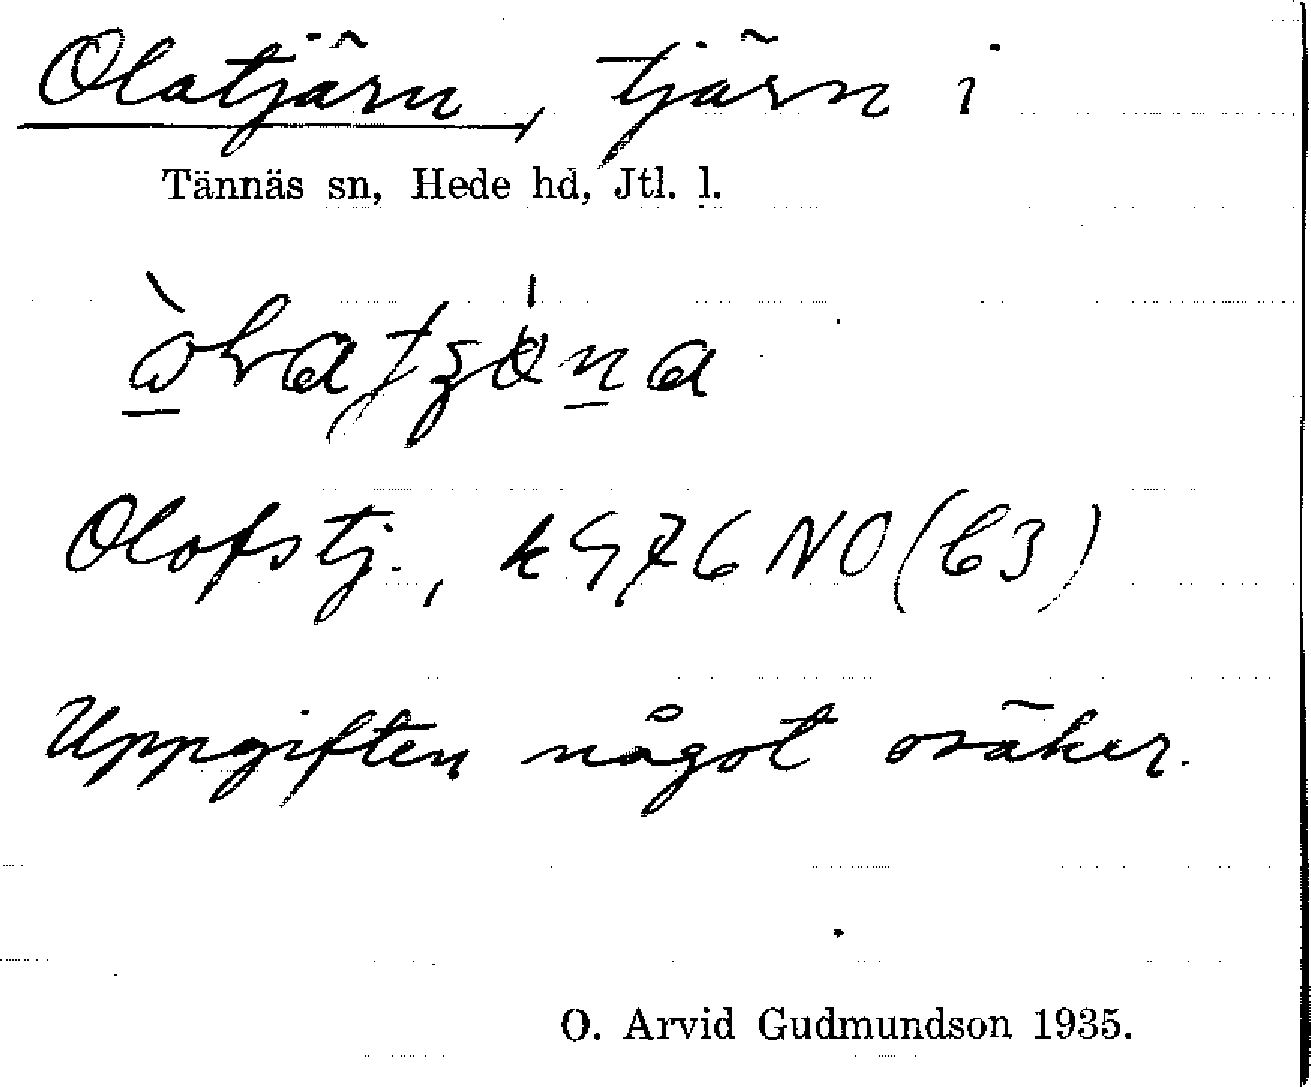 Olatjärn, tjärn i
Tännäs sn, Hede hd, Jtl. l.
Olofstj., k G76 NO (C3)
Uppgiften något osäker.
O. Arvid Gudmundson 1935.